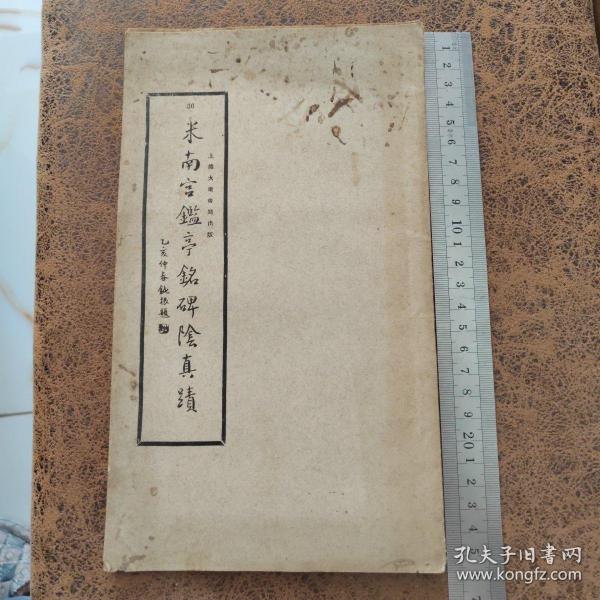 30
米南宫鑑亭銘碑陰真蹟
上海大眾書局出版
乙亥仲春鈍根題
1 2 3 4 5 6 7 8 9 10 1 2 3 4 5 6 7 8 9 20 1 2 3 4
孔夫子旧书网
www.kongfz.com